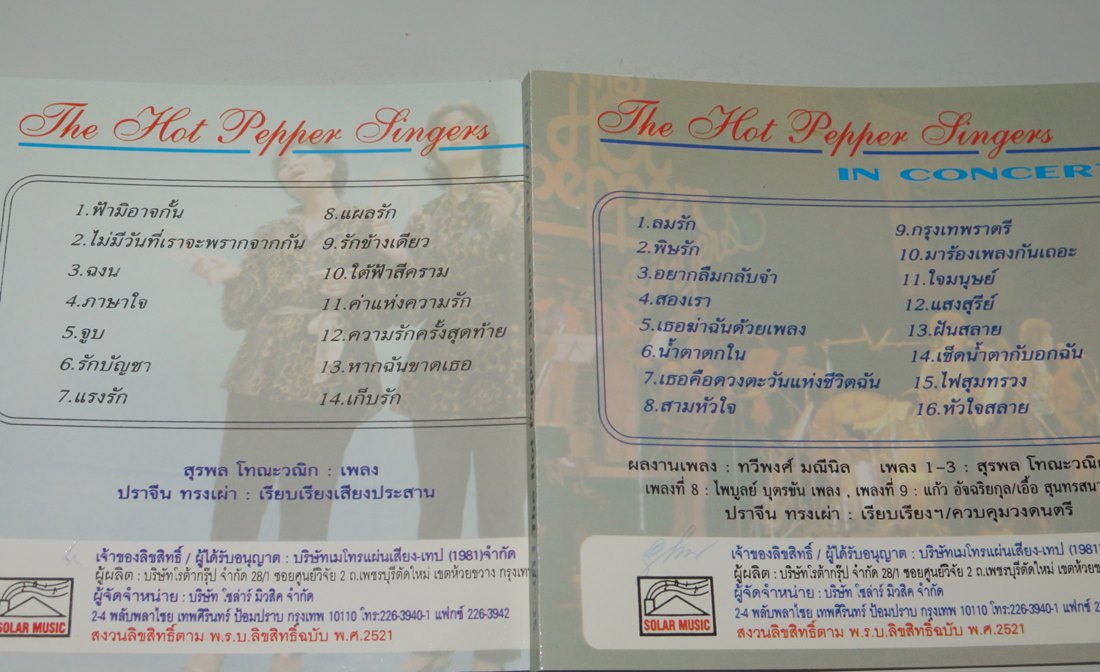 The Hot Pepper Singers
1.ฟ้ามิอาจกั้น
2.ไม่มีวันที่เราจะพรากจากกัน
3.ฉงน
4.ภาษาใจ
5.จูบ
6.รักบัญชา
7.แรงรัก
8.แผลรัก
9.รักข้างเดียว
10.ใต้ฟ้าสีคราม
11.ค่าแห่งความรัก
12.ความรักครั้งสุดท้าย
13.หากฉันขาดเธอ
14.เก็บรัก
สุรพล โทณะวณิก : เพลง
ปราจีน ทรงเผ่า : เรียบเรียงเสียงประสาน
เจ้าของลิขสิทธิ์ / ผู้ได้รับอนุญาต : บริษัทเมโทรแผ่นเสียง-เทป (1981)จำกัด
ผู้ผลิต : บริษัทโรต้ากรุ๊ป จำกัด 28/1 ซอยศูนย์วิจัย 2 ถ.เพชรบุรีตัดใหม่ เขตห้วยขวาง กรุงเท
ผู้จัดจำหน่าย : บริษัท โซล่าร์ มิวสิค จำกัด
2-4 พลับพลาไชย เทพศิรินทร์ ป้อมปราบ กรุงเทพ 10110 โทร:226-3940-1 แฟกซ์ 226-3942
สงวนลิขสิทธิ์ตาม พ.ร.บ.ลิขสิทธิ์ฉบับ พ.ศ.2521
SOLAR MUSIC
The Hot Pepper Singers
IN CONCERT
1.ลมรัก
2.พิษรัก
3.อยากลืมกลับจำ
4.สองเรา
5.เธอฆ่าฉันด้วยเพลง
6.น้ำตาตกใน
7.เธอคือดวงตะวันแห่งชีวิตฉัน
8.สามหัวใจ
9.กรุงเทพราตรี
10.มาร้องเพลงกันเถอะ
11.ใจมนุษย์
12.แสงสุรีย์
13.ฝันสลาย
14.เช็ดน้ำตากับอกฉัน
15.ไฟสุมทรวง
16.หัวใจสลาย
ผลงานเพลง : ทวีพงศ์ มณีนิล เพลง 1-3 : สุรพล โทณะวณิ
เพลงที่ 8 : ไพบูลย์ บุตรขัน เพลง , เพลงที่ 9 : แก้ว อัจฉริยกุล/เอื้อ สุนทรสนา
ปราจีน ทรงเผ่า : เรียบเรียงฯ/ควบคุมวงดนตรี
เจ้าของลิขสิทธิ์ / ผู้ได้รับอนุญาต : บริษัทเมโทรแผ่นเสียง-เทป (1981
ผู้ผลิต : บริษัทโรต้ากรุ๊ป จำกัด 28/1 ซอยศูนย์วิจัย 2 ถ.เพชรบุรีตัดใหม่ เขตห้วย
ผู้จัดจำหน่าย : บริษัท โซล่าร์ มิวสิค จำกัด
2-4 พลับพลาไชย เทพศิรินทร์ ป้อมปราบ กรุงเทพ 10110 โทร:226-3940-1 แฟกซ์ 2
สงวนลิขสิทธิ์ตาม พ.ร.บ.ลิขสิทธิ์ฉบับ พ.ศ.2521
SOLAR MUSIC